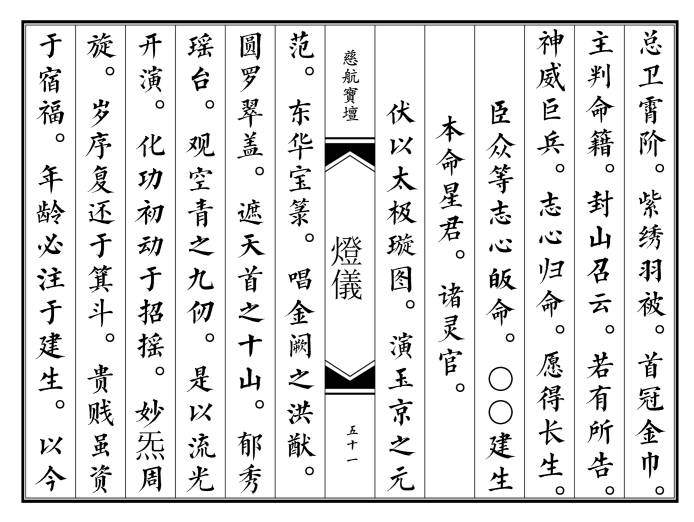 总卫霄阶。紫绣羽被。首冠金巾。
主判命籍。封山召云。若有所告。
神威巨兵。志心归命。愿得长生。
臣众等志心皈命。〇〇建生
本命星君。诸灵官。
伏以太极璇图。演玉京之元
慈航寶壇
燈儀
五十一
范。东华宝箓。唱金阙之洪猷。
圆罗翠盖。遮天首之十山。郁秀
瑶台。观空青之九仞。是以流光
开演。化功初动于招摇。妙炁周
旋。岁序复还于箕斗。贵贱虽资
于宿福。年龄必注于建生。以今